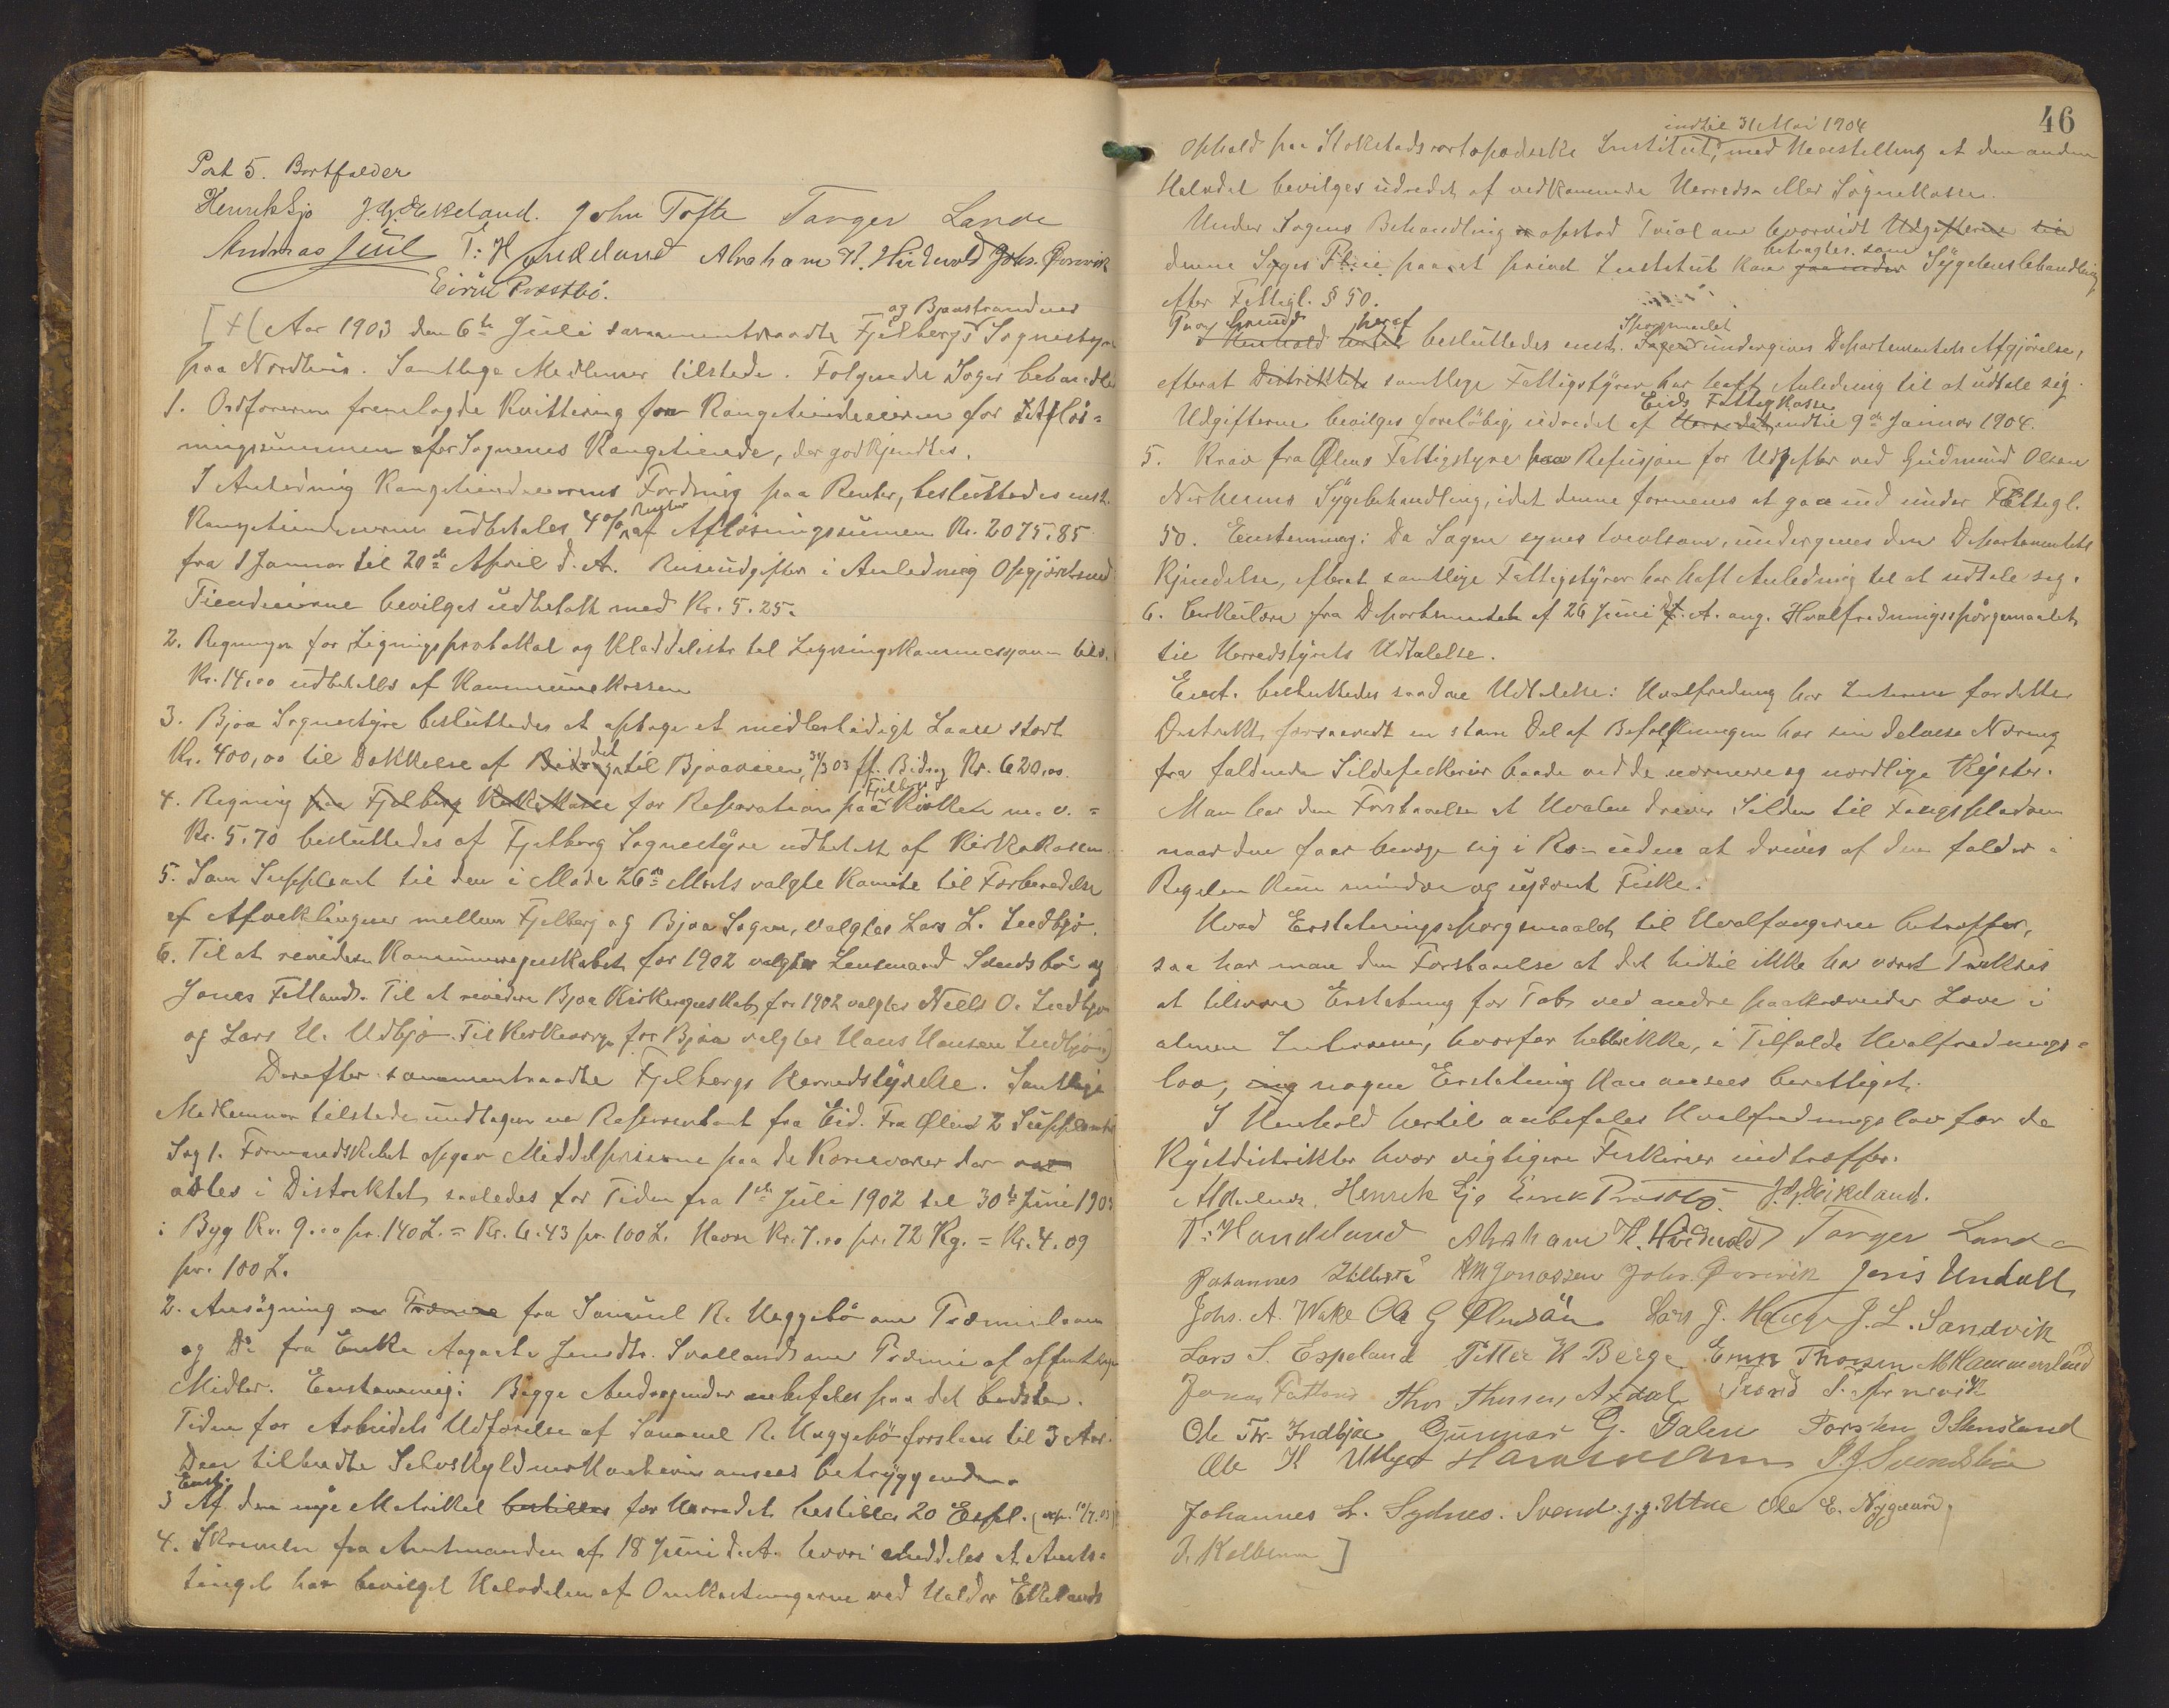 Post 5. Bortfalder
Henrik Ljo J. G. Ekeland. John Tofte Torger Lande
Andreas Juul T: Handeland Abraham H. Hindenold Johs. Øvrevik
Eirik Prestbö.
og Bjoastrandens
[+( Aar 1903 den 6te Juli sammentraadte Fjelbergs Sognestyre
paa Nordheim. Samtlige Medlemmer tilstede. Følgende Sager behandles
1. Ordføreren fremlagde Kvittering fra Kongetiendeeieren for Afløs-
ningssummen for Sognenes Kongetiende, der godkjendtes.
I Anledning Kongetiendeeierens Fordring paa Renter, besluttedes enst.
Kongetiendeeieren udbetales 4% Renter af Afløsningssummen Kr. 2075,85
fra 1 Januar til 20de April d. A. Reiseudgifter i Anledning Opgjöret med
Tiendeeierne bevilges udbetalt med Kr. 5.25.
2. Regningen for Ligningsprotokol og Kladdelister til Ligningskommissionen
Kr. 14,00 udbetales af Kommunekassen
3. Bjoa Sognestyre besluttedes at optage et midlertidigt Laan stort
Kr. 400,00 til Dækkelse af Bidraget til Bjoaveien, 31/3 03 jf. Bidrag Kr. 620,00.
4. Regning paa Fjelberg Kirkekasse for Reparation paa Fjelberg Kirken m. v. =
Kr. 5,70 besluttedes af Fjelberg Sognestyre udbetalt af Kirkekassen.
5. Som Suppleant til den i Møde 26de Marts valgte Komite til Forberedelse
af Afviklingen mellem Fjelberg og Bjoa Sogne, valgtes Lars L. Indbjo.
6. Til at revidere Kommuneregnskabet for 1902 valgtes Lensmand Svendsbö og
Jonas Fatland. Til at revidere Bjoa Kirkeregnskab for 1902 valgtes Neels O. Indbjo
og Lars H. Udbjo. Til Kirkeværge for Bjoa valgtes Hans Hansen Indbjo)
Derefter sammentraadte Fjelbergs Herredstyrelse. Samtlige
Medlemmer tilstede undtagen en Repræsentant fra Eid. Fra Ølen 2 Suppleanter
Sag 1. Formandskabet opgav Middelpriserne paa de Kornvarer der var
avles i Distriktet saaledes for Tiden fra 1ste Juli 1902 til 30te Juni 1903
: Byg Kr. 9.00 pr. 140 L. = Kr. 6.43 pr. 100 L. Havre Kr. 7.00 pr. 72 Kg. = Kr. 4.09
pr. 100 L.
2. Ansögning om Præmie fra Samuel R. Heggebö om Præmielaan
og Do fra Enke Aagaate Svallands om Præmie af offentlige
Midler. Enstemmig: Begge Andragender anbefales paa det bedste.
Tiden for Arbeidets Udförelse af Samuel R. Heggebö forslaaes til 3 Aar.
Den tilbudte Selvskyldnerkaution ansees betryggende.
Enst.
3 Af den nye Matrikel bestilles for Herredet bestilles 20 Expl. (exp. 10/7. 03)
4. Skrivelse fra Amtmanden af 18 Juni d. A. hvori meddeles at Amts-
tinget har bevilget Halvdelen af Omkostningerne ved Haldor Ekelands
46
indtil 31 Mai 1904
Ophold paa Stokstads ortopædiske Institut, med Henstilling at den anden
Halvdel bevilges udredet af vedkommende Herreds- eller Sognekasse.
Under Sagens Behandling opstod Tvivl om hvorvidt Udgifterne til
denne Syges Pleie paa et privat Institut kan betragtes som Sygehusbehandling
efter Fattigl. § 50.
Paa Grund heraf
I Henhold hertil besluttedes enst. Spørgsmaalet Sagen undergives Departementets Afgjörelse,
efterat Distriktets samtlige Fattigstyrer har havt Anledning til at udtale sig.
Udgifterne bevilges foreløbig udredet af Eids Fattigkasse Herredet indtil 9de Januar 1904.
5. Krav fra Ølens Fattigstyre paa Refusjon for Udgifter ved Gudmund Olsen
Nerheims Sygebehandling, idet denne formenes at gaa ind under Fattigl.
50. Enstemmig: Da Sagen synes tvivlsom, undergives den Departementets
Kjendelse, efterat samtlige Fattigstyrer har haft Anledning til at udtale sig.
6. Cirkulære fra Departementet af 26 Juni d. A. ang. Hvalfredningsspörgsmaalet
til Herredstyrets Udtalelse.
Enst. besluttedes saadan Udtalelse: Hvalfredning har Interesse for dette
Distrikt, forsaavidt en stor Del af Befolkningen har sin delvise Næring
fra faldende Sildefiskerier baade ved de nærmere og nordlige Kyster.
Man har den Forstaaelse at Hvalen driver Silden til Fangspladsen
naar den faar bevæge sig i Ro - uden at drives af den falder i
Regelen kun mindre og usikkert Fiske.
Hvad Erstatningsspørgsmaalet til Hvalfangerne betræffer,
saa har man den Forstaaelse at det hidtil ikke har været Praksis
at tilsvare Erstatning for Tab ved andre paakrævende Love i
almen Interesse, hvorfor heller ikke, i Tilfælde Hvalfrednings-
lov, nogen Erstatning kan ansees berettiget.
I Henhold hertil anbefales Hvalfredningslov for de
Kystdistrikter hvor vigtigere Fiskerier indtræffer.
Henrik Ljo Eirik Prestbö. J. G. Eikeland.
T: Handeland Abraham H. Hindenold Torger Lande
Johannes Johs. Øvrevik Jens Undall
Johs. A. Wake Ole G Ølensön Lars J. Hauge J. L. Sandvik
Lars S. Espeland Petter H Berge Enok Thorsen M Hammersland
Jonas Fatland Thor Thorsen Axdal Trond S.
Ole Th. Indbjoe Gunnar G. Dalen Torsten J Stensland
Ole H Utbjoe J. J. Svendsbö
Johannes L. Sydnes. Svend. J. J. Utne Ole E. Nygaard,
]